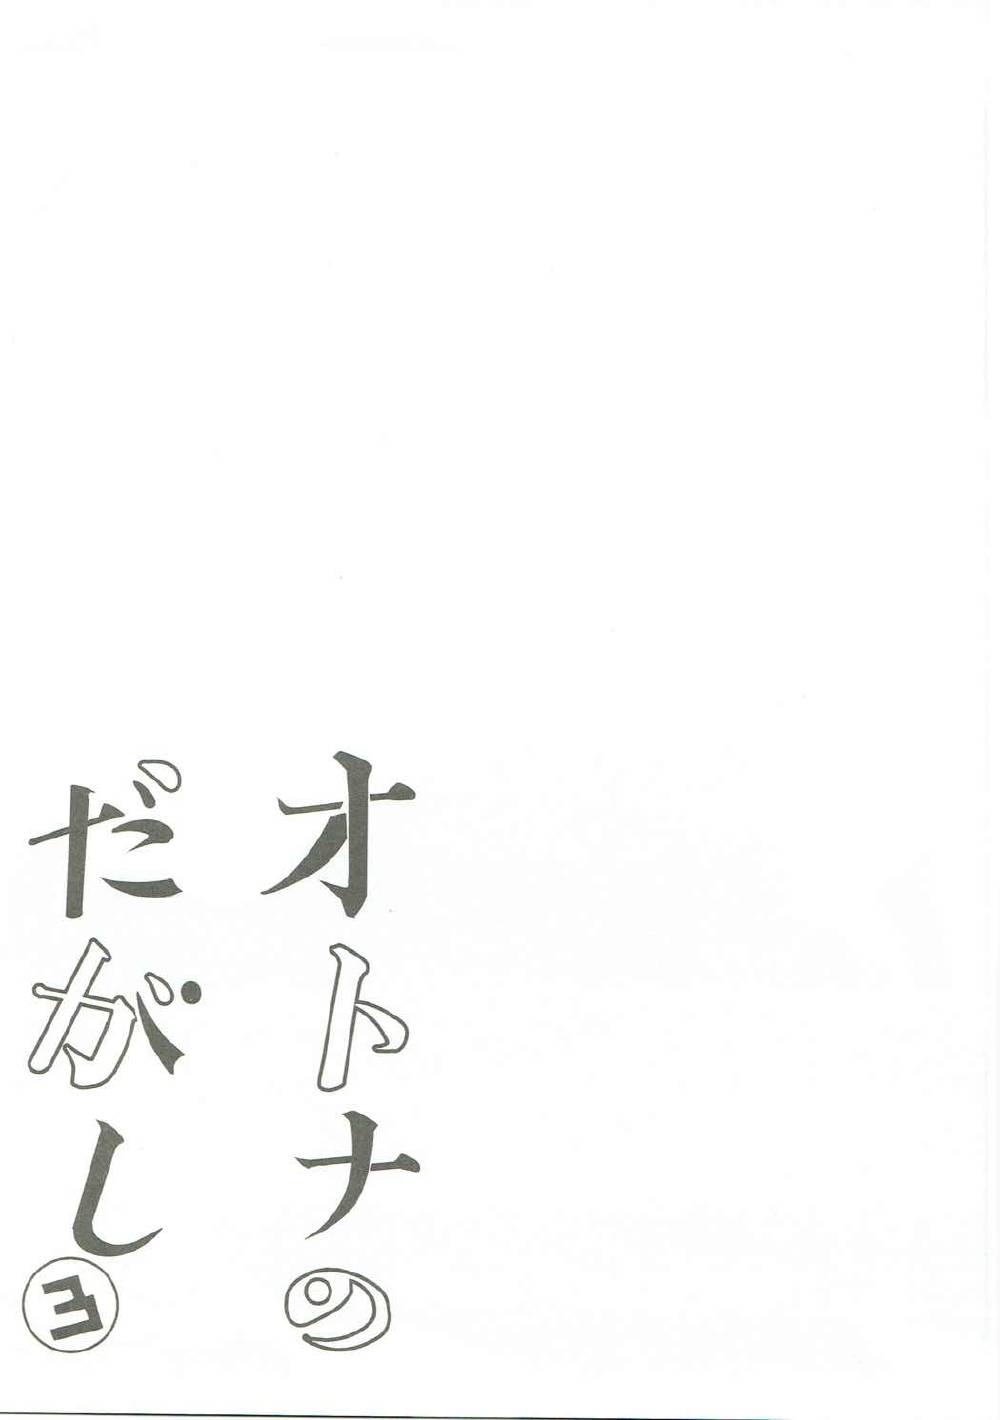 オトナの
だがし3